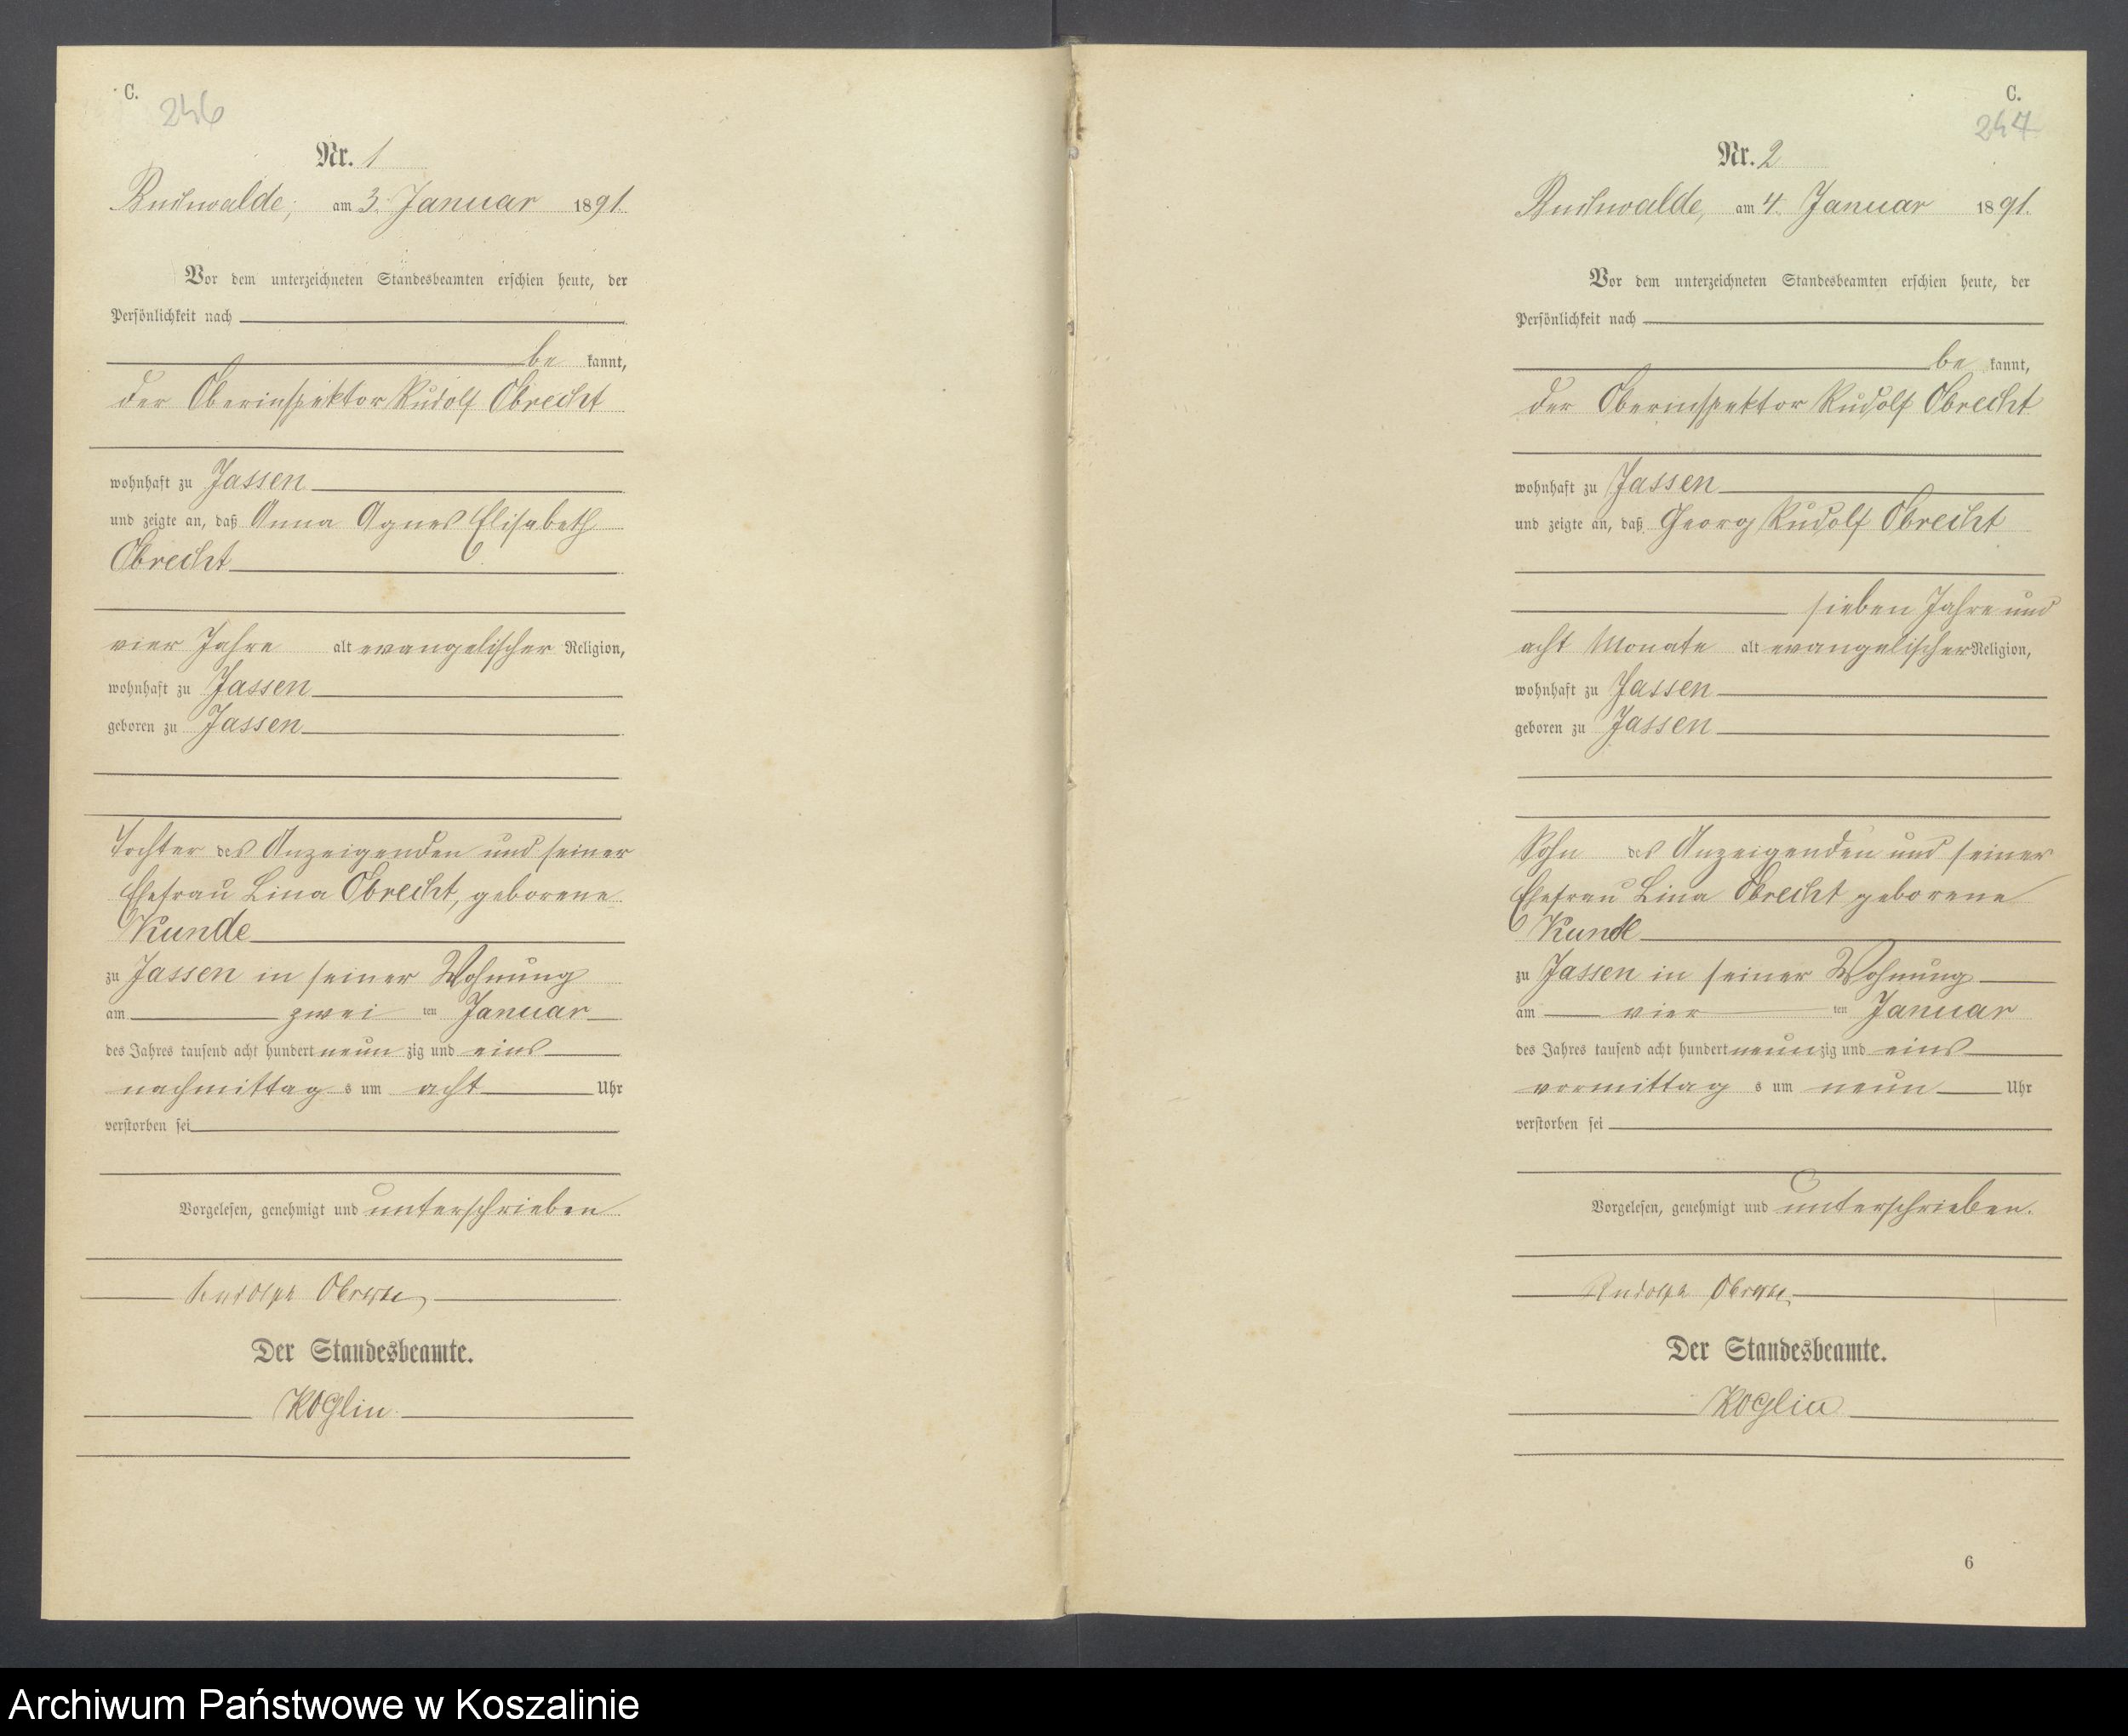 C.
246
Nr. 1
Buchwalde, am 3. Januar 1891.
Vor dem unterzeichneten Standesbeamten erschien heute, der
Persönlichkeit nach
be kannt,
der Oberinspektor Rudolf Obrecht
wohnhaft zu Jassen
und zeigte an, daß Anna Agnes Elisabeth
Obrecht
vier Jahre alt evangelischer Religion,
wohnhaft zu Jassen
geboren zu Jassen
Tochter des Anzeigenden und seiner
Ehefrau Lina Obrecht, geborene
Kunde
zu Jassen in seiner Wohnung
am zwei ten Januar
des Jahres tausend acht hundert neun zig und eins
nachmittag s um acht Uhr
verstorben sei
Vorgelesen, genehmigt und unterschrieben
Rudolph Obrecht
Der Standesbeamte.
Koglin
C.
247
Nr. 2
Buchwalde, am 4. Januar 1891.
Vor dem unterzeichneten Standesbeamten erschien heute, der
Persönlichkeit nach
be kannt,
der Oberinspektor Rudolf Obrecht
wohnhaft zu Jassen
und zeigte an, daß Georg Rudolf Obrecht
sieben Jahre und
acht Monate alt evangelischer Religion,
wohnhaft zu Jassen
geboren zu Jassen
Sohn des Anzeigenden und seiner
Ehefrau Lina Obrecht geborene
Kunde
zu Jassen in seiner Wohnung
am vier ten Januar
des Jahres tausend acht hundert neun zig und eins
vormittag s um neun Uhr
verstorben sei
Vorgelesen, genehmigt und unterschrieben.
Rudolph Obrecht
Der Standesbeamte.
Koglin
6
Archiwum Państwowe w Koszalinie